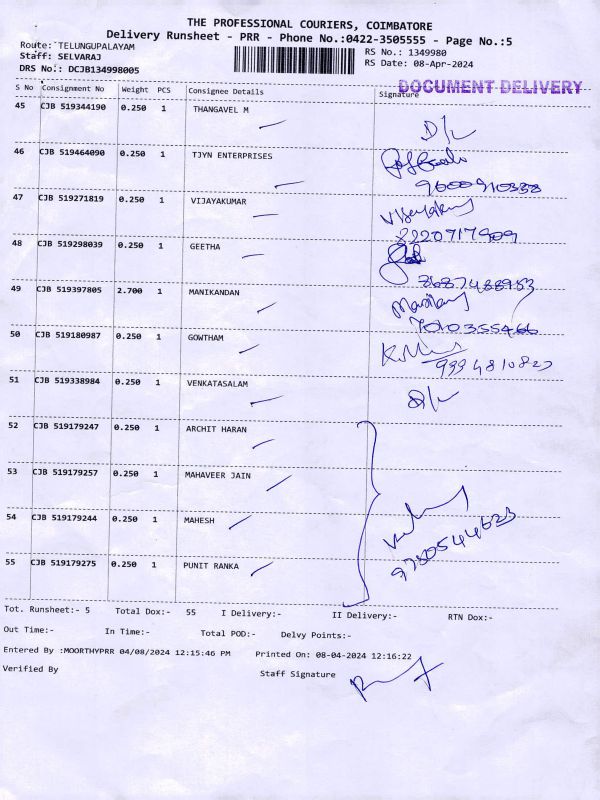 THE PROFESSIONAL COURIERS, COIMBATORE
Delivery Runsheet - PRR - Phone No.:0422-3505555 - Page No.:5
Route: TELUNGUPALAYAM RS No.: 1349980
Staff: SELVARAJ RS Date: 08-Apr-2024
DRS No.: DCJB134998005
DOCUMENT DELIVERY
S No Consignment No Weight PCS Consignee Details Signature
45 CJB 519344190 0.250 1 THANGAVEL M
D/L
46 CJB 519464090 0.250 1 TJYN ENTERPRISES
9600910338
47 CJB 519271819 0.250 1 VIJAYAKUMAR
Vijayakumar
48 CJB 519298039 0.250 1 GEETHA
49 CJB 519397805 2.700 1 MANIKANDAN
7010355466
50 CJB 519180987 0.250 1 GOWTHAM
51 CJB 519338984 0.250 1 VENKATASALAM
D/L
52 CJB 519179247 0.250 1 ARCHIT HARAN
53 CJB 519179257 0.250 1 MAHAVEER JAIN
54 CJB 519179244 0.250 1 MAHESH
55 CJB 519179275 0.250 1 PUNIT RANKA
Tot. Runsheet:- 5 Total Dox:- 55 I Delivery:- II Delivery:- RTN Dox:-
Out Time:- In Time:- Total POD:- Delvy Points:-
Entered By :MOORTHYPRR 04/08/2024 12:15:46 PM Printed On: 08-04-2024 12:16:22
Verified By Staff Signature